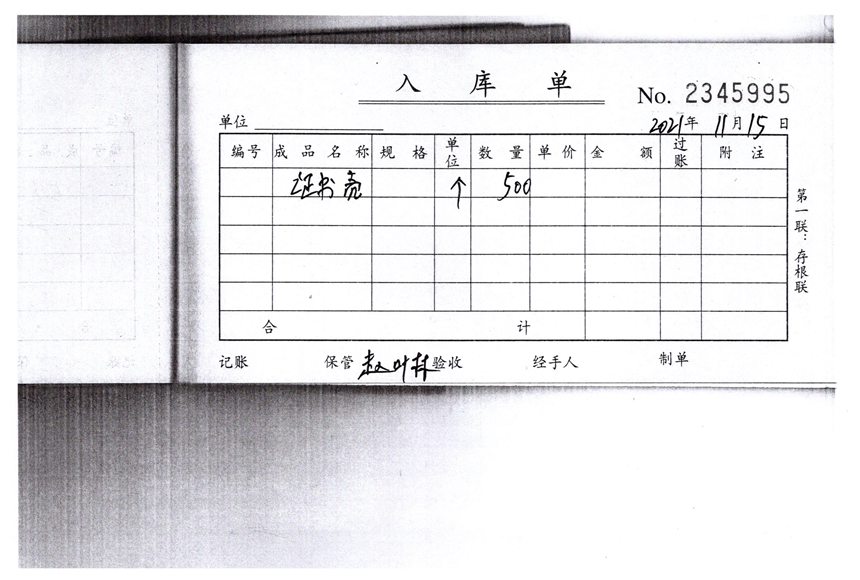 入库单
No. 2345995
单位
2021年11月15日
编号 成品名称 规格 单位 数量 单价 金额 过账 附注
证书壳 个 500
合计
记账 保管 赵叶林 验收 经手人 制单
第一联：存根联